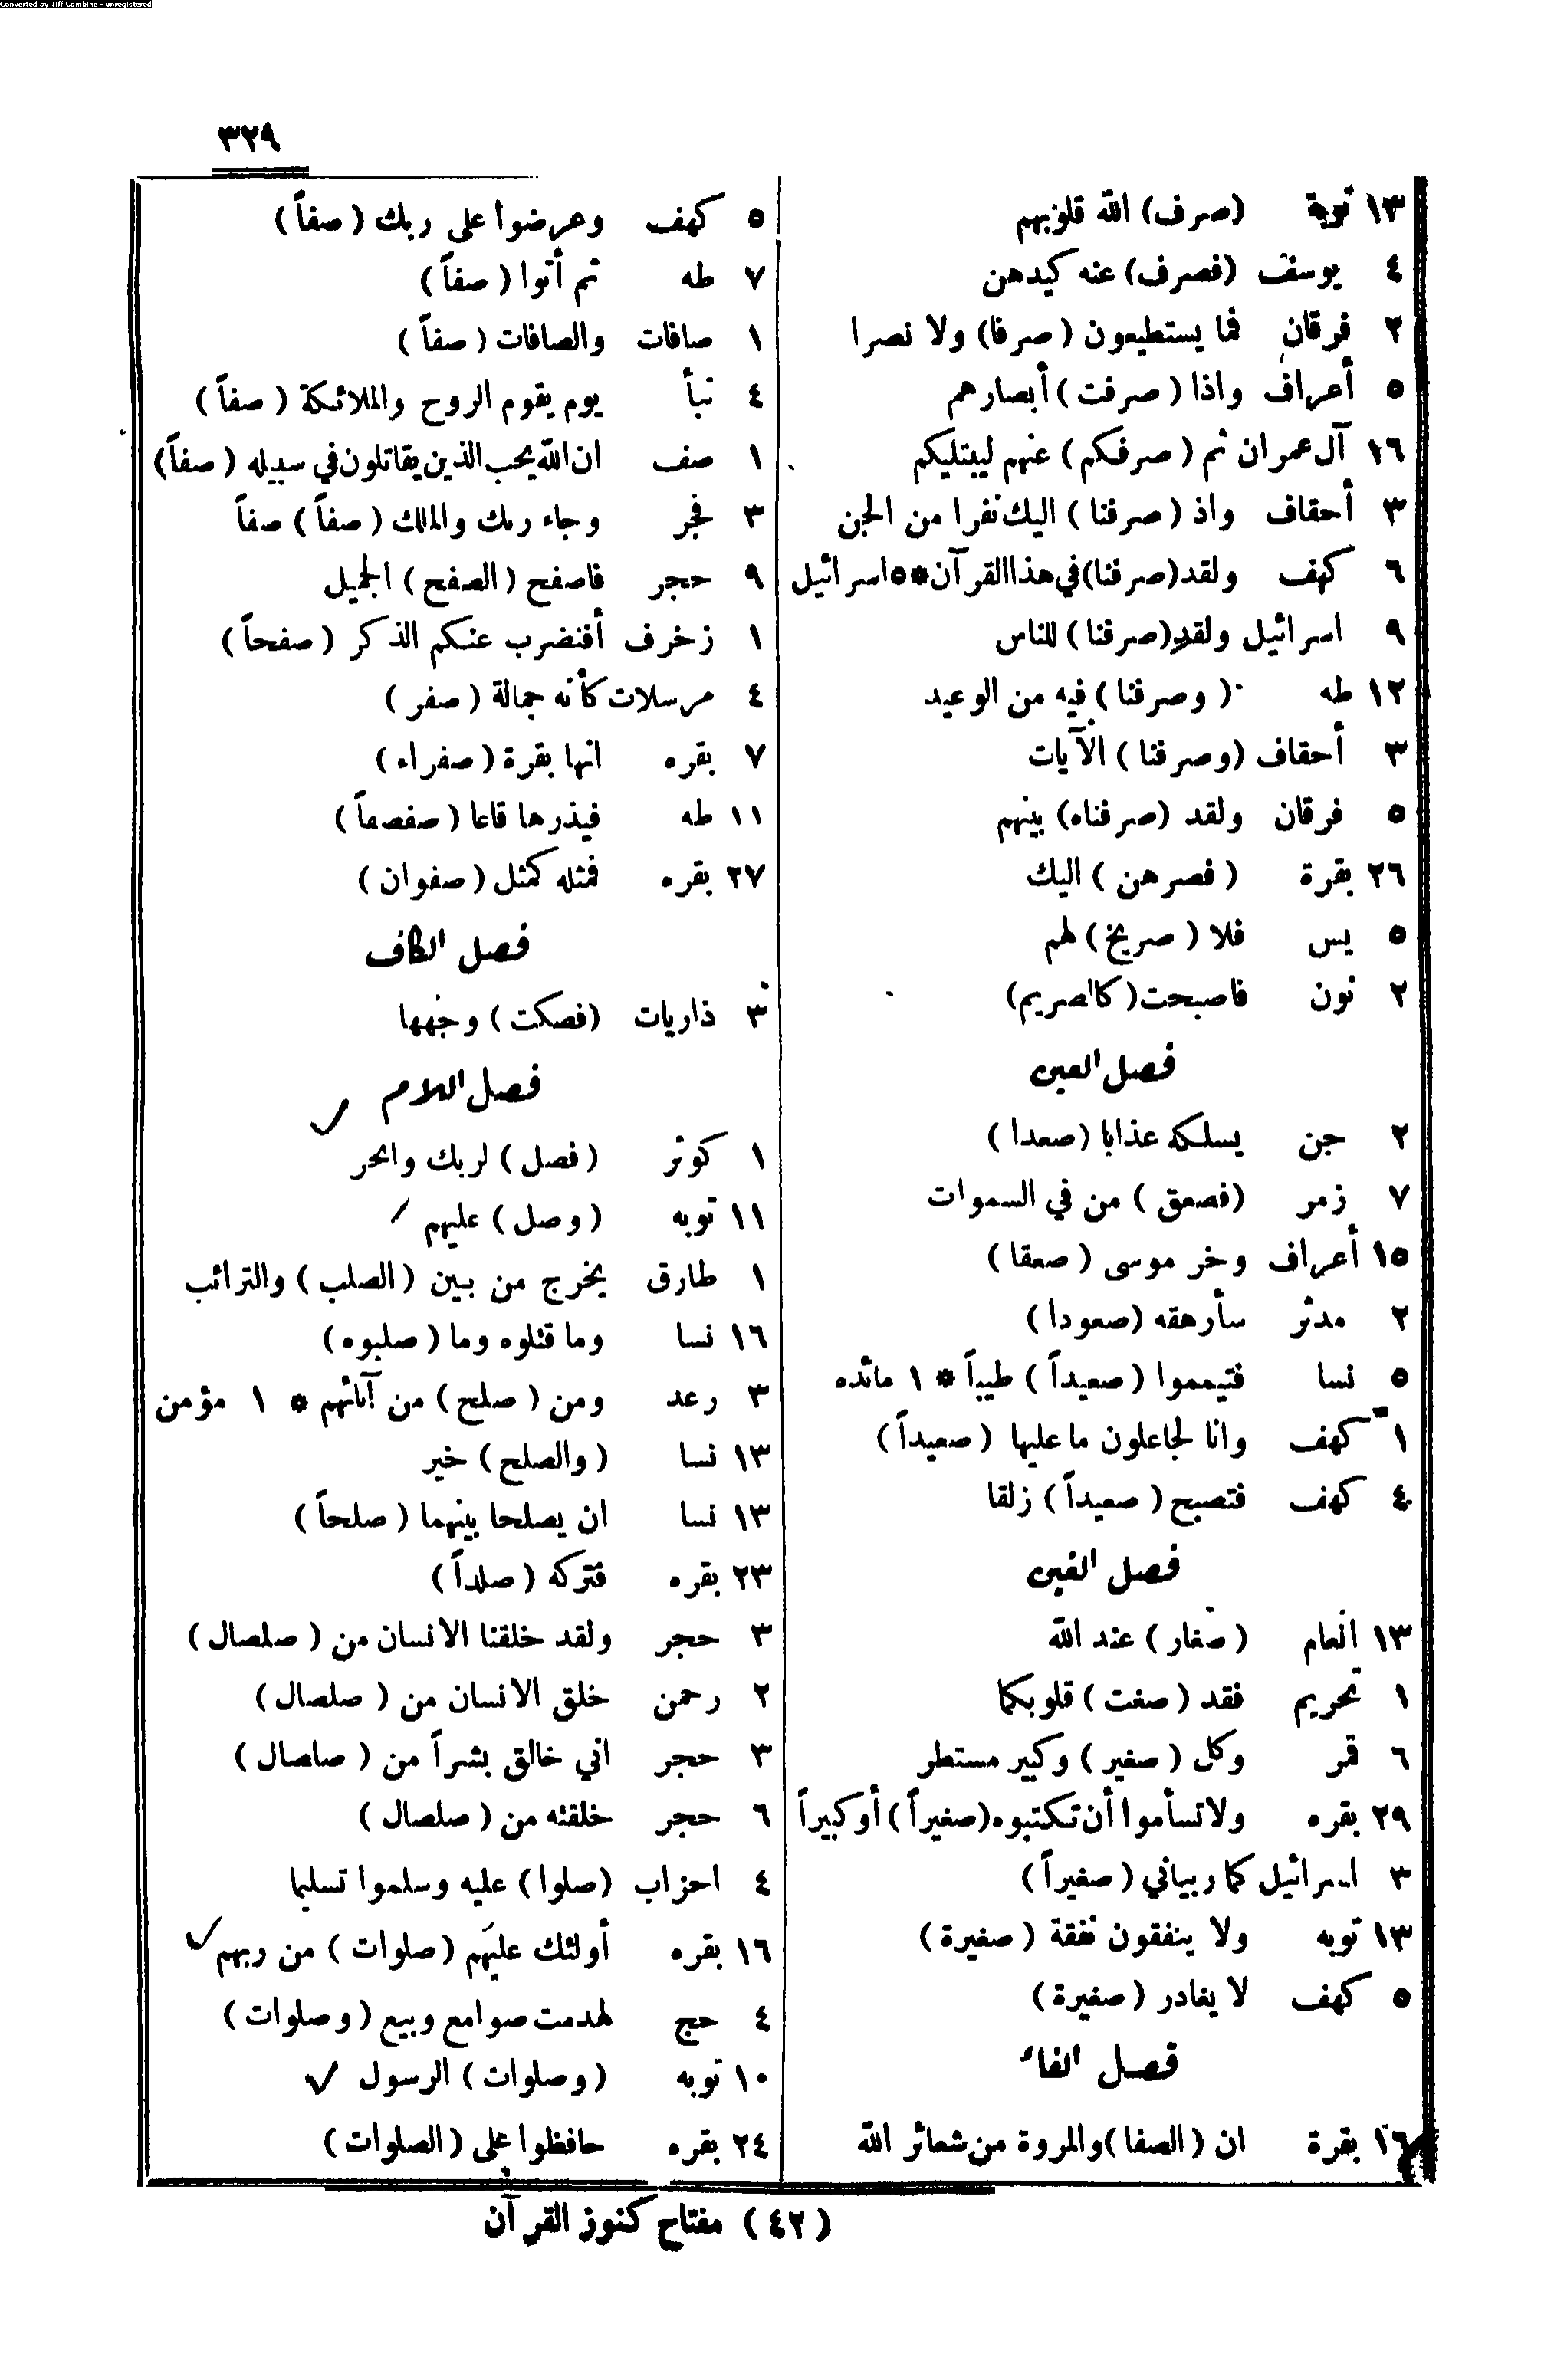 Converted by Tiff Combine - unregistered
٣٢٩
١٣ توبة (صرف) الله قلوبهم
٤ يوسف (فصرف) عنه كيدهن
٢ فرقان فما يستطيعون (صرفا) ولا نصرا
٥ أعراف واذا (صرفت) أبصارهم
١٦ آل عمران ثم (صرفكم) عنهم ليبتليكم
٣ أحقاف واذ (صرفنا) اليك نفرا من الجن
٦ كهف ولقد (صرفنا) في هذا القرآن * ٥ اسرائيل
٩ اسرائيل ولقد (صرفنا) للناس
١٢ طه (وصرفنا) فيه من الوعيد
٣ أحقاف (وصرفنا) الآيات
٥ فرقان ولقد (صرفناه) بينهم
٢٦ بقرة (فصرهن) اليك
٥ يس فلا (صريخ) لهم
٢ نون فاصبحت (كالصريم)
فصل العين
٢ جن يسلكه عذابا (صعدا)
٧ زمر (فصعق) من في السموات
١٥ أعراف وخر موسى (صعقا)
٢ مدثر سأرهقه (صعودا)
٥ نسا فتيمموا (صعيداً) طيباً * ١ مائده
١ كهف وانا لجاعلون ما عليها (صعيداً)
٤ كهف فتصبح (صعيداً) زلقا
فصل الغين
١٣ انعام (صغار) عند الله
١ تحريم فقد (صغت) قلوبكما
٦ قمر وكل (صغير) وكبير مستطر
٢٩ بقره ولا تسأموا أن تكتبوه (صغيراً) أو كبيراً
٣ اسرائيل كما ربياني (صغيراً)
١٣ توبه ولا ينفقون نفقة (صغيرة)
٥ كهف لا يغادر (صغيرة)
فصل الفاء
١٦ بقرة ان (الصفا) والمروة من شعائر الله
٥ كهف وعرضوا على ربك (صفاً)
٧ طه ثم أتوا (صفاً)
١ صافات والصافات (صفاً)
٤ نبأ يوم يقوم الروح والملائكة (صفاً)
١ صف ان الله يحب الذين يقاتلون في سبيله (صفاً)
٣ فجر وجاء ربك والملك (صفاً) صفاً
٩ حجر فاصفح (الصفح) الجميل
١ زخرف أفنضرب عنكم الذكر (صفحاً)
٤ مرسلات كأنه جمالة (صفر)
٧ بقره انها بقرة (صفراء)
١١ طه فيذرها قاعا (صفصفاً)
٢٧ بقره فمثله كمثل (صفوان)
فصل الكاف
٣ ذاريات (فصكت) وجهها
فصل اللام
١ كوثر (فصل) لربك وانحر
١١ توبه (وصل) عليهم
١ طارق يخرج من بين (الصلب) والترائب
١٦ نسا وما قتلوه وما (صلبوه)
٣ رعد ومن (صلح) من آبائهم * ١ مؤمن
١٣ نسا (والصلح) خير
١٣ نسا ان يصلحا بينهما (صلحاً)
٢٣ بقره فتركه (صلداً)
٣ حجر ولقد خلقنا الانسان من (صلصال)
٢ رحمن خلق الانسان من (صلصال)
٣ حجر اني خالق بشراً من (صلصال)
٦ حجر خلقته من (صلصال)
٤ احزاب (صلوا) عليه وسلموا تسليما
١٦ بقره أولئك عليهم (صلوات) من ربهم
٤ حج لهدمت صوامع وبيع (وصلوات)
١٠ توبه (وصلوات) الرسول
٢٤ بقره حافظوا على (الصلوات)
(٤٢) مفتاح كنوز القرآن